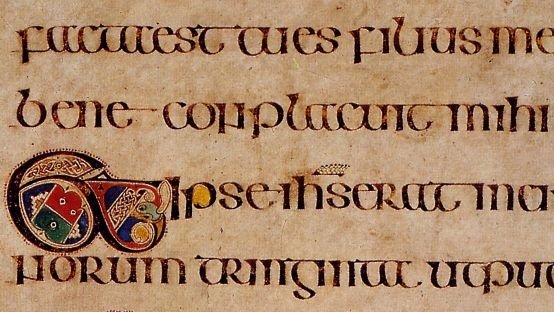 facta est tu es filius me
bene conplacuit mihi
Et ipse ihs erat inci
norum triginta ut put